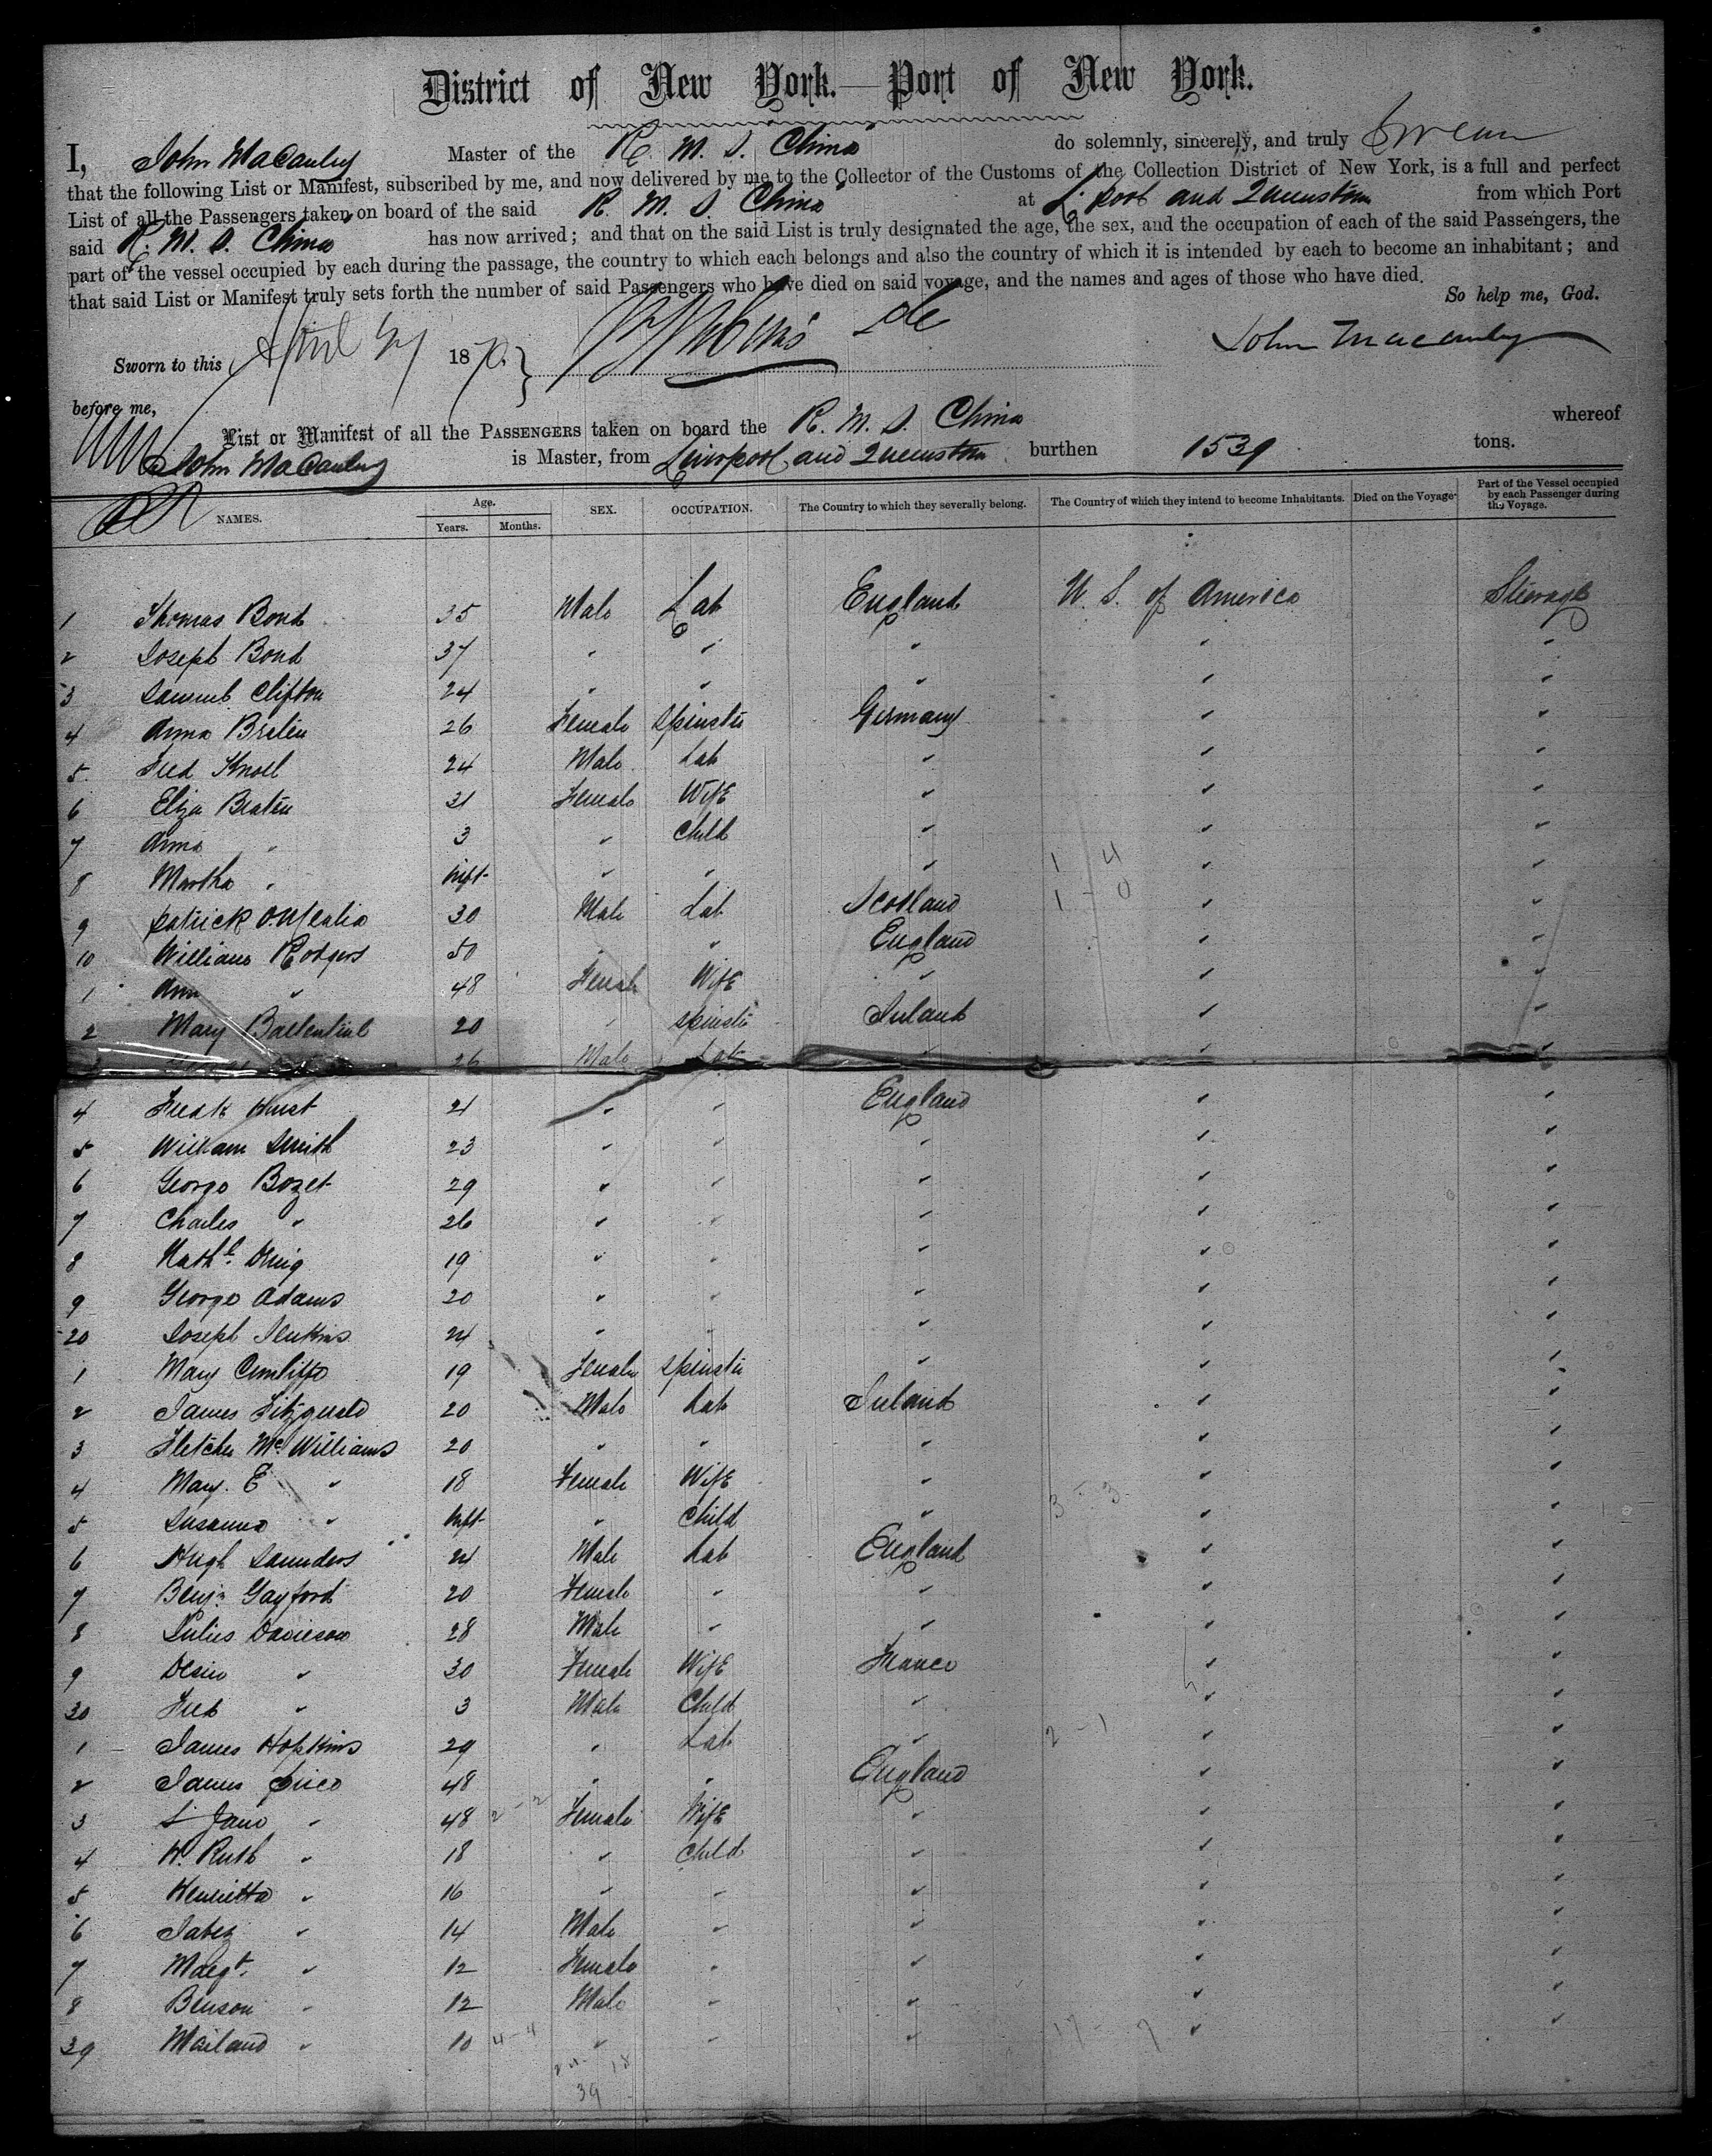 District of New York.—Port of New York.
I, John MaCauley Master of the R. M. S. China do solemnly, sincerely, and truly Swear
that the following List or Manifest, subscribed by me, and now delivered by me to the Collector of the Customs of the Collection District of New York, is a full and perfect
List of all the Passengers taken on board of the said R. M. S. China at L.pool and Queenstown from which Port
said R. M. S. China has now arrived; and that on the said List is truly designated the age, the sex, and the occupation of each of the said Passengers, the
part of the vessel occupied by each during the passage, the country to which each belongs and also the country of which it is intended by each to become an inhabitant; and
that said List or Manifest truly sets forth the number of said Passengers who have died on said voyage, and the names and ages of those who have died.
So help me, God.
Sworn to this April 27 1870. John Macauley
before me,
List or Manifest of all the PASSENGERS taken on board the R. M. S. China whereof
John MaCauley is Master, from Liverpool and Queenstown burthen 1539 tons.
NAMES. Age. Years. Months. SEX. OCCUPATION. The Country to which they severally belong. The Country of which they intend to become Inhabitants. Died on the Voyage. Part of the Vessel occupied by each Passenger during the Voyage.
1 Thomas Bond 35 Male Lab England U. S. of America Steerage
2 Joseph Bond 37 " " " " "
3 Samuel Clifton 24 " " " " "
4 Anna 26 Female Spinster Germany " "
5 Fred Knoll 24 Male Lab " " "
6 Eliza 31 Female Wife " " "
7 Anna " 3 " Child " " "
8 Martha " Inft " " " " "
9 Patrick 30 Male Lab Scotland " "
10 William Rodgers 50 " " England " "
1 Ann " 48 Female Wife " " "
2 Mary Ballentine 20 " Spinster Ireland " "
26 Male Lab " " "
4 Fredk Hurst 21 " " England " "
5 William Smith 23 " " " " "
6 George Bozet 29 " " " " "
7 Charles " 26 " " " " "
8 Nathl. King 19 " " " " "
9 George Adams 20 " " " " "
20 Joseph Jenkins 24 " " " " "
1 Mary Cunliffe 19 Female Spinster " " "
2 James Fitzgerald 20 Male Lab Ireland " "
3 Fletcher McWilliams 20 " " " " "
4 Mary. E " 18 Female Wife " " "
5 Susanna " Inft " Child " " "
6 Hugh Saunders 24 Male Lab England " "
7 Benjn Gayford 20 Female " " " "
8 Julius Davieson 28 Male " " " "
9 " 30 Female Wife France " "
30 Fred " 3 Male Child " " "
1 James Hopkins 29 " Lab " " "
2 James 48 " " England " "
3 S Jane " 48 Female Wife " " "
4 H. Ruth " 18 " Child " " "
5 Henrietta " 16 " " " " "
6 Jabez " 14 Male " " " "
7 Margt. " 12 Female " " " "
8 Benson " 12 Male " " " "
39 Mailand " 10 " " " " "
39